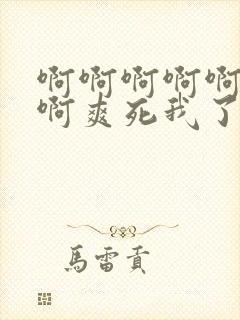 啊啊啊啊啊
啊爽死我了
馬雷貢